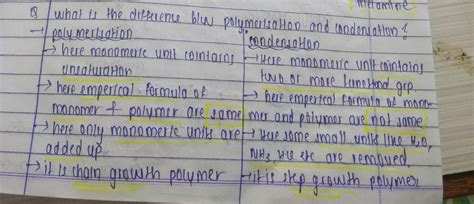 melamine
Q what is the difference b/w polymerisation and condensation ?
polymerisation
→ here monomeric unit contains
unsaturation
→ here emperical formula of
monomer & polymer are same
→ here only monomeric units are
added up
→ it is chain growth polymer
condensation
→ Here monomeric unit contains
two or more functional grp.
→ here emperical formula of mono-
mer and polymer are not same
→ Here some small units like H₂O,
NH₃, etc are removed.
→ it is step growth polymer